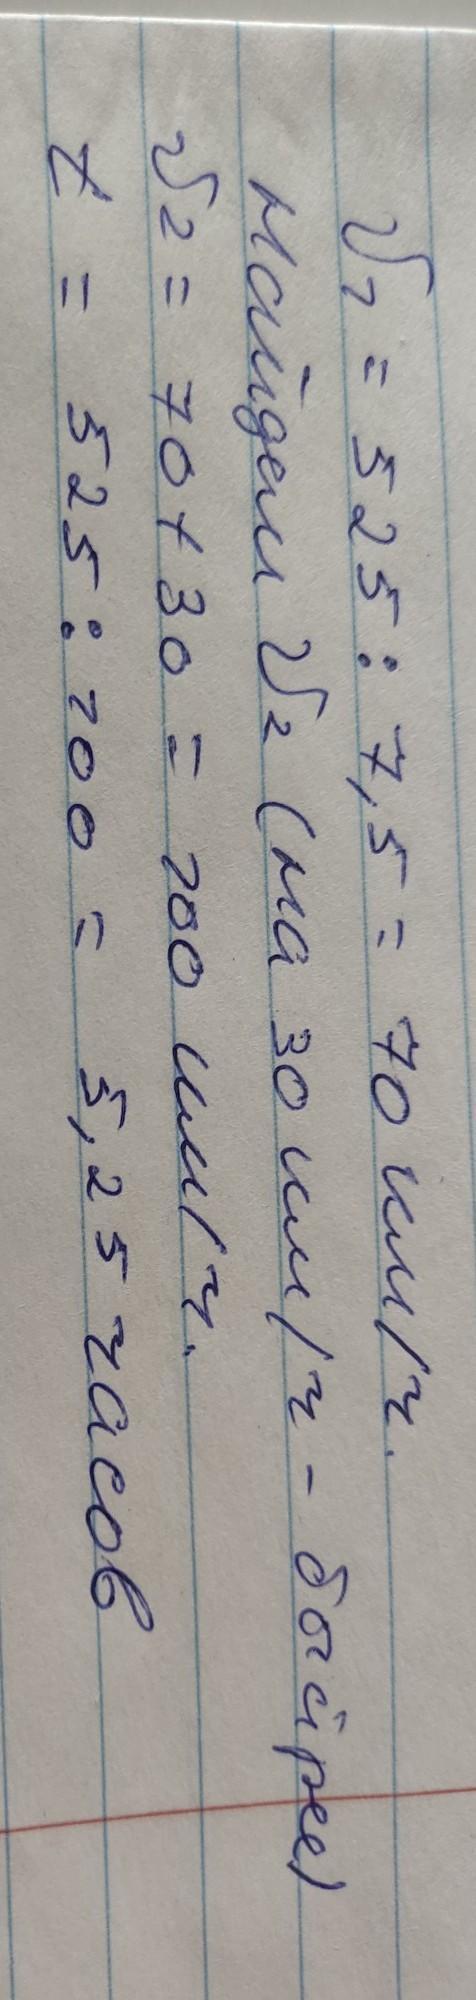 V₁ = 525 : 7,5 = 70 км/ч.
Найдем V₂ (на 30 км/ч - быстрее)
V₂ = 70 + 30 = 100 км/ч.
t = 525 : 100 = 5,25 часов